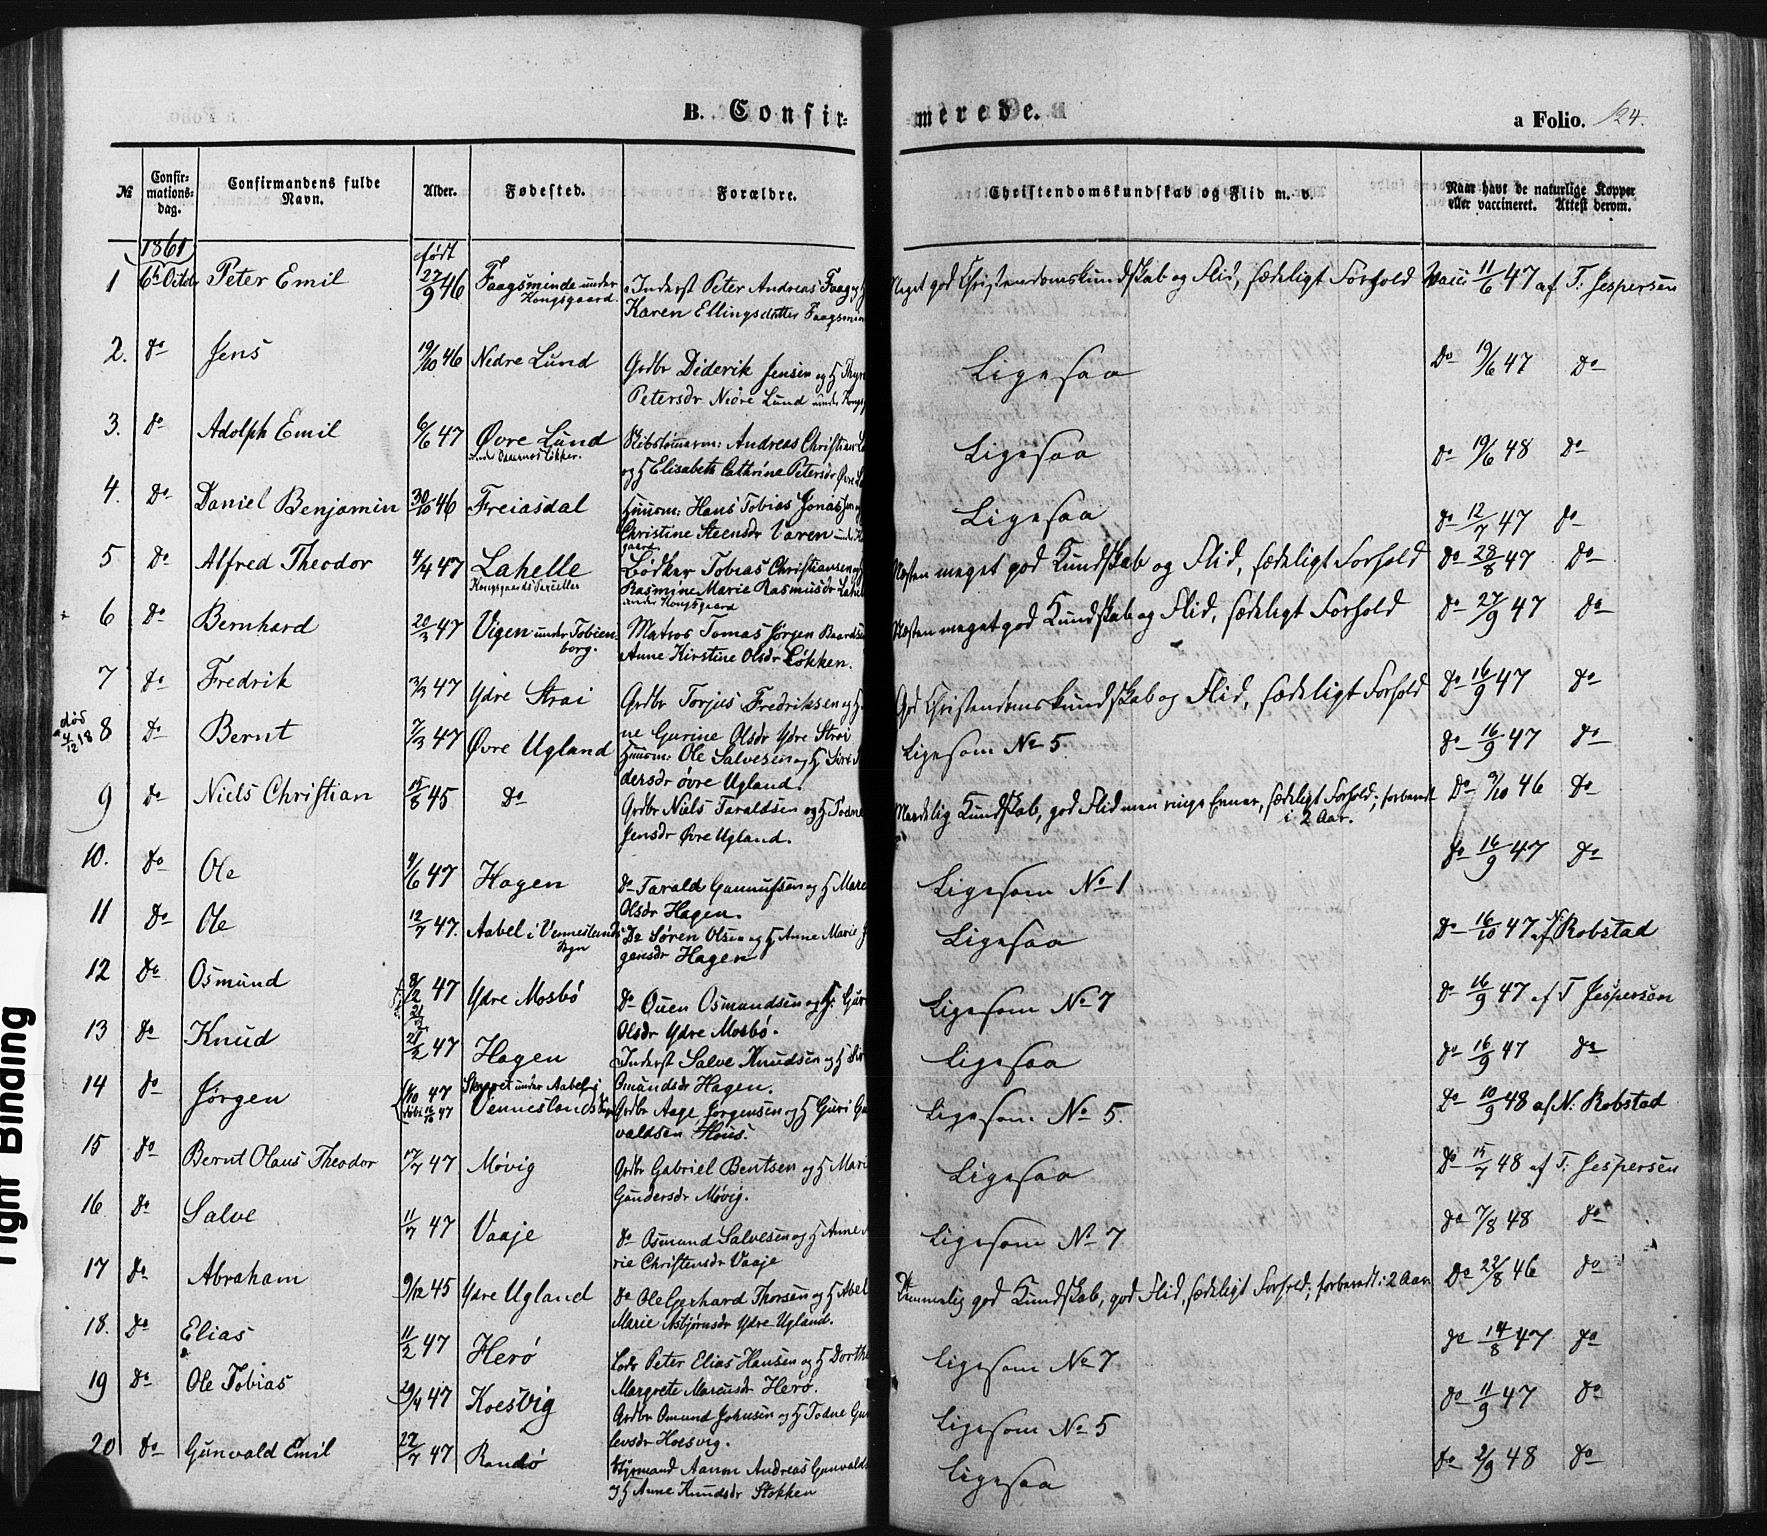 B. Confir-
merede.
a Folio. 124.
№
Confir-
mations-
dag.
Confirmandens fulde
Navn.
Alder.
Fødested.
Forældre.
Christendomskundskab og Flid m. v.
Naar havt de naturlige Kopper
eller vaccineret.
Attest derom.
1861
født
1 6t Octbr Peter Emil 27/9 46 Faagsminde under Kongsgaard. Inderst Peter Andreas Faag og H Meget god Christendomskundskab og Flid, sædeligt Forhold Vacc: 11/6 47 af T. Jespersen
Karen Ellingsdatter Faagsmin
2. Do Jens 19/10 46 Nedre Lund Grdbr Diderik Jensen og H Thyr Ligesaa Do 19/6 47 Do
Petersdr Nedre Lund under Kongsg
3. Do Adolph Emil 6/6 47 Øvre Lund Skibstømmerm: Andreas Christian Ligesaa Do 19/6 48 Do
og H Elisabeth Cathrine Petersdr Øvre L
4. Do Daniel Benjamin 30/10 46 Freiasdal Huusm: Hans Tobias Jonasen Ligesaa Do 12/7 47 Do
Christine Steensdr Varen under K
gaard
5 Do Alfred Theodor 4/4 47 Lahelle Bødker Tobias Christiansen og Næsten meget god Kundskab og Flid, sædeligt Forhold Do 28/8 47 Do
Kongsgaards Parceller Rasmine Marie Rasmusdr Lahel
under Kongsgaard
6 Do Bernhard 20/3 47 Vigen under Tobien- Matros Tomas Jørgen Baardsen Næsten meget god Kundskab og Flid, sædeligt Forhold Do 27/9 47 Do
borg. Anne Kirstine Olsdr Løkken.
7 Do Fredrik 3/3 47 Ydre Strai Grdbr Torjus Fredriksen og H. God Christendomskundskab og Flid, sædeligt Forhold Do 16/9 47 Do
ne Gurine Olsdr Ydre Strai
død 4/12 18
8 Do Bernt 7/3 47 Øvre Ugland Huusm: Ole Salvesen og H Siri Ligesom No 5. Do 16/9 47 Do
dersdr øvre Ugland.
9 Do Niels Christian 15/8 45 Do Grdbr Niels Taraldsen og H Todne Maadelig Kundskab, god Flid men ringe Evner, sædeligt Forhold; forberedt Do 9/10 46 Do
i 2 Aar.
Jensdr Øvre Ugland.
10. Do Ole 4/6 47 Hagen Do Tarald Gunnufsen og H Maren Ligesom No 1 Do 16/9 47 Do
Olsdr Hagen.
11 Do Ole 12/7 47. Aabel i Venneslands Do Søren Olsen og H Anne Marie J Ligesaa Do 16/10 47 af N. Robstad
Sogn gensdr Hagen
12 Do Osmund 8/2 47 Ydre Mosbø Do Ouen Osmundsen og H: Gur Ligesom No 7 Do 16/9 47 af T Jespersen
Olsdr Ydre Mosbø.
13 Do Knud 21/2 47 Hagen Inderst Salve Knudsen og H Sir Ligesaa Do 16/9 47 Do
Omundsdr Hagen.
14 Do Jørgen 47 under Aabel i Grdbr Aage Jørgensen og H Guri Gu Ligesom No 5. Do 10/9 48 af N: Robstad
døbt 47 Venneslands Sogn valdsen Hous.
15 Do Bernt Olaus Theodor 17/7 47 Møvig Grdbr Gabriel Bentsen og H Mari Ligesaa Do 15/7 48 af T: Jespersen
Gundersdr Møvig.
16 Do Salve 11/7 47 Vaaje Do Osmund Salvesen og H Anne Ligesom No 7 Do 7/8 48 Do
rie Christensdr Vaaje
17 Do Abraham 9/12 45 Ydre Ugland Do Ole Gerhard Thorsen og H Abel Temmelig god Kundskab, god Flid, sædeligt Forhold; forberedt i 2 Aar Do 22/8 46 Do
Marie Asbjørnsdr Ydre Ugland.
18. Do Elias 11/2 47 Herø Lods Peter Elias Hansen og H Dorthe Ligesom No 7 Do 14/8 47 Do
Margrete Marcusdr Herø.
19 Do Ole Tobias 29/4 47 Koesvig Grdbr Omund Johnsen og H Todne Gun Ligesom No 5 Do 11/9 47 Do
levsdr Koesvig.
20 Do Gunvald Emil 22/7 47 Randø Styrmand Aanon Andreas Gunvalds Ligesaa Do 2/9 48 Do
og H Anne Knudsdr Stokken
Tight Binding